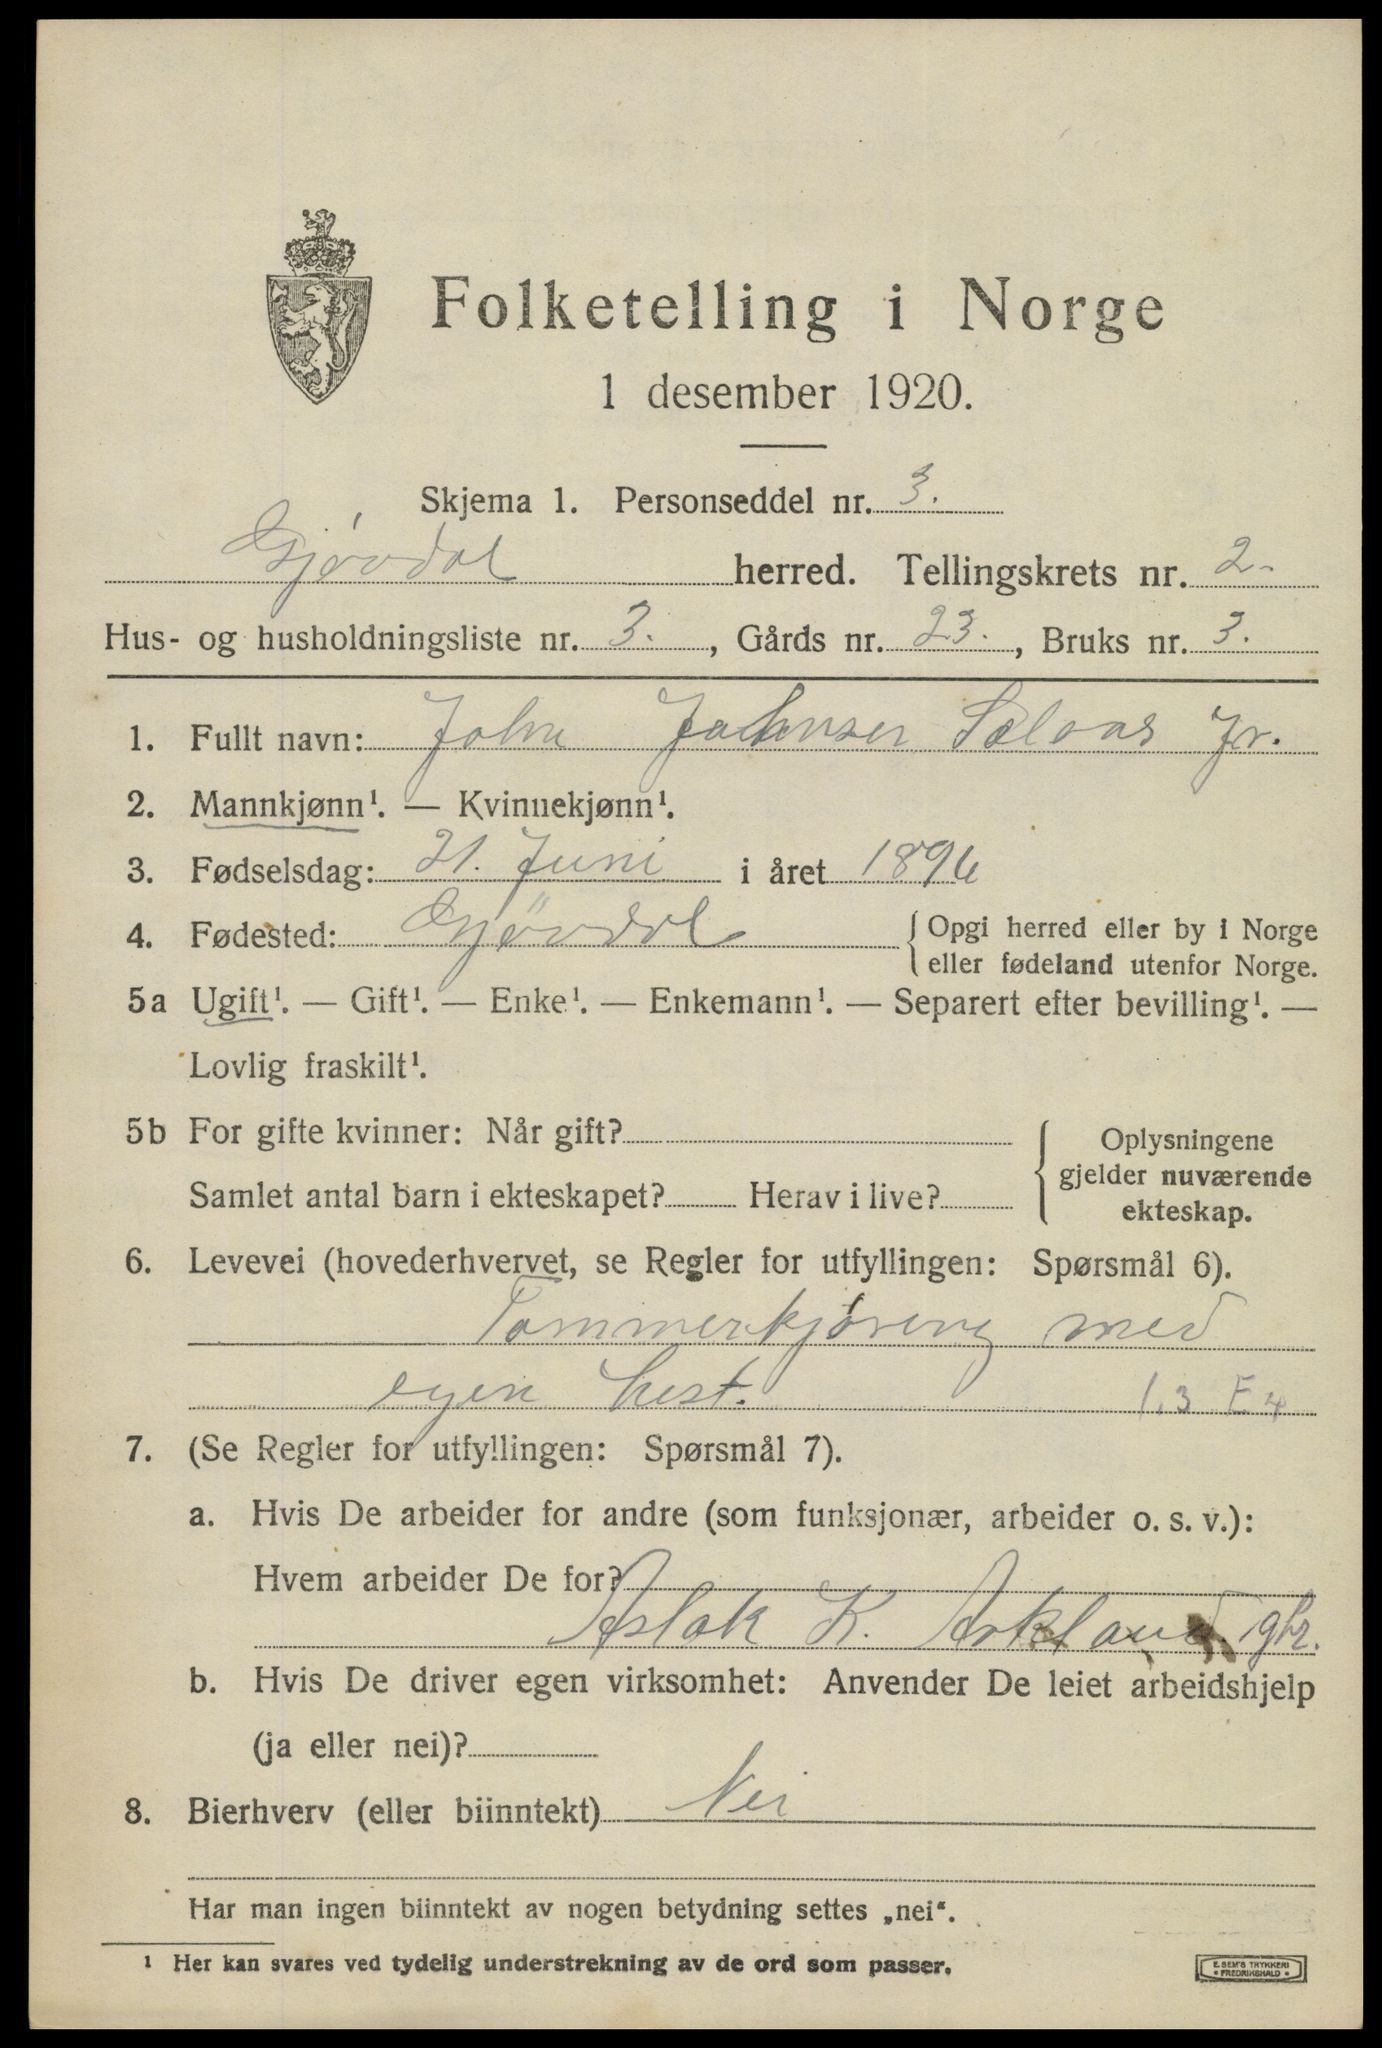 Folketelling i Norge
1 desember 1920.
Skjema 1. Personseddel nr. 3.
Gjøvdal herred. Tellingskrets nr. 2.
Hus- og husholdningsliste nr. 3., Gårds nr. 23., Bruks nr. 3.
1. Fullt navn: John Johnsen Sælaas Jr.
2. Mannkjønn¹. — Kvinnekjønn¹.
3. Fødselsdag: 21. Juni i året 1896
4. Fødested: Gjövdal { Opgi herred eller by i Norge
eller fødeland utenfor Norge.
5a Ugift¹. — Gift¹. — Enke¹. — Enkemann¹. — Separert efter bevilling¹. —
Lovlig fraskilt¹.
5b For gifte kvinner: Når gift?
Samlet antal barn i ekteskapet? Herav i live?
{ Oplysningene
gjelder nuværende
ekteskap.
6. Levevei (hovederhvervet, se Regler for utfyllingen: Spørsmål 6).
Tømmerkjøring med
egen hest. 1.3 E4
7. (Se Regler for utfyllingen: Spørsmål 7).
a. Hvis De arbeider for andre (som funksjonær, arbeider o. s. v.):
Hvem arbeider De for?
Aslak K. Askland. gbr.
b. Hvis De driver egen virksomhet: Anvender De leiet arbeidshjelp
(ja eller nei)?
8. Bierhverv (eller biinntekt) Nei
Har man ingen biinntekt av nogen betydning settes „nei“.
¹ Her kan svares ved tydelig understrekning av de ord som passer.
E. SEM'S TRYKKERI
• FREDRIKSHALD •